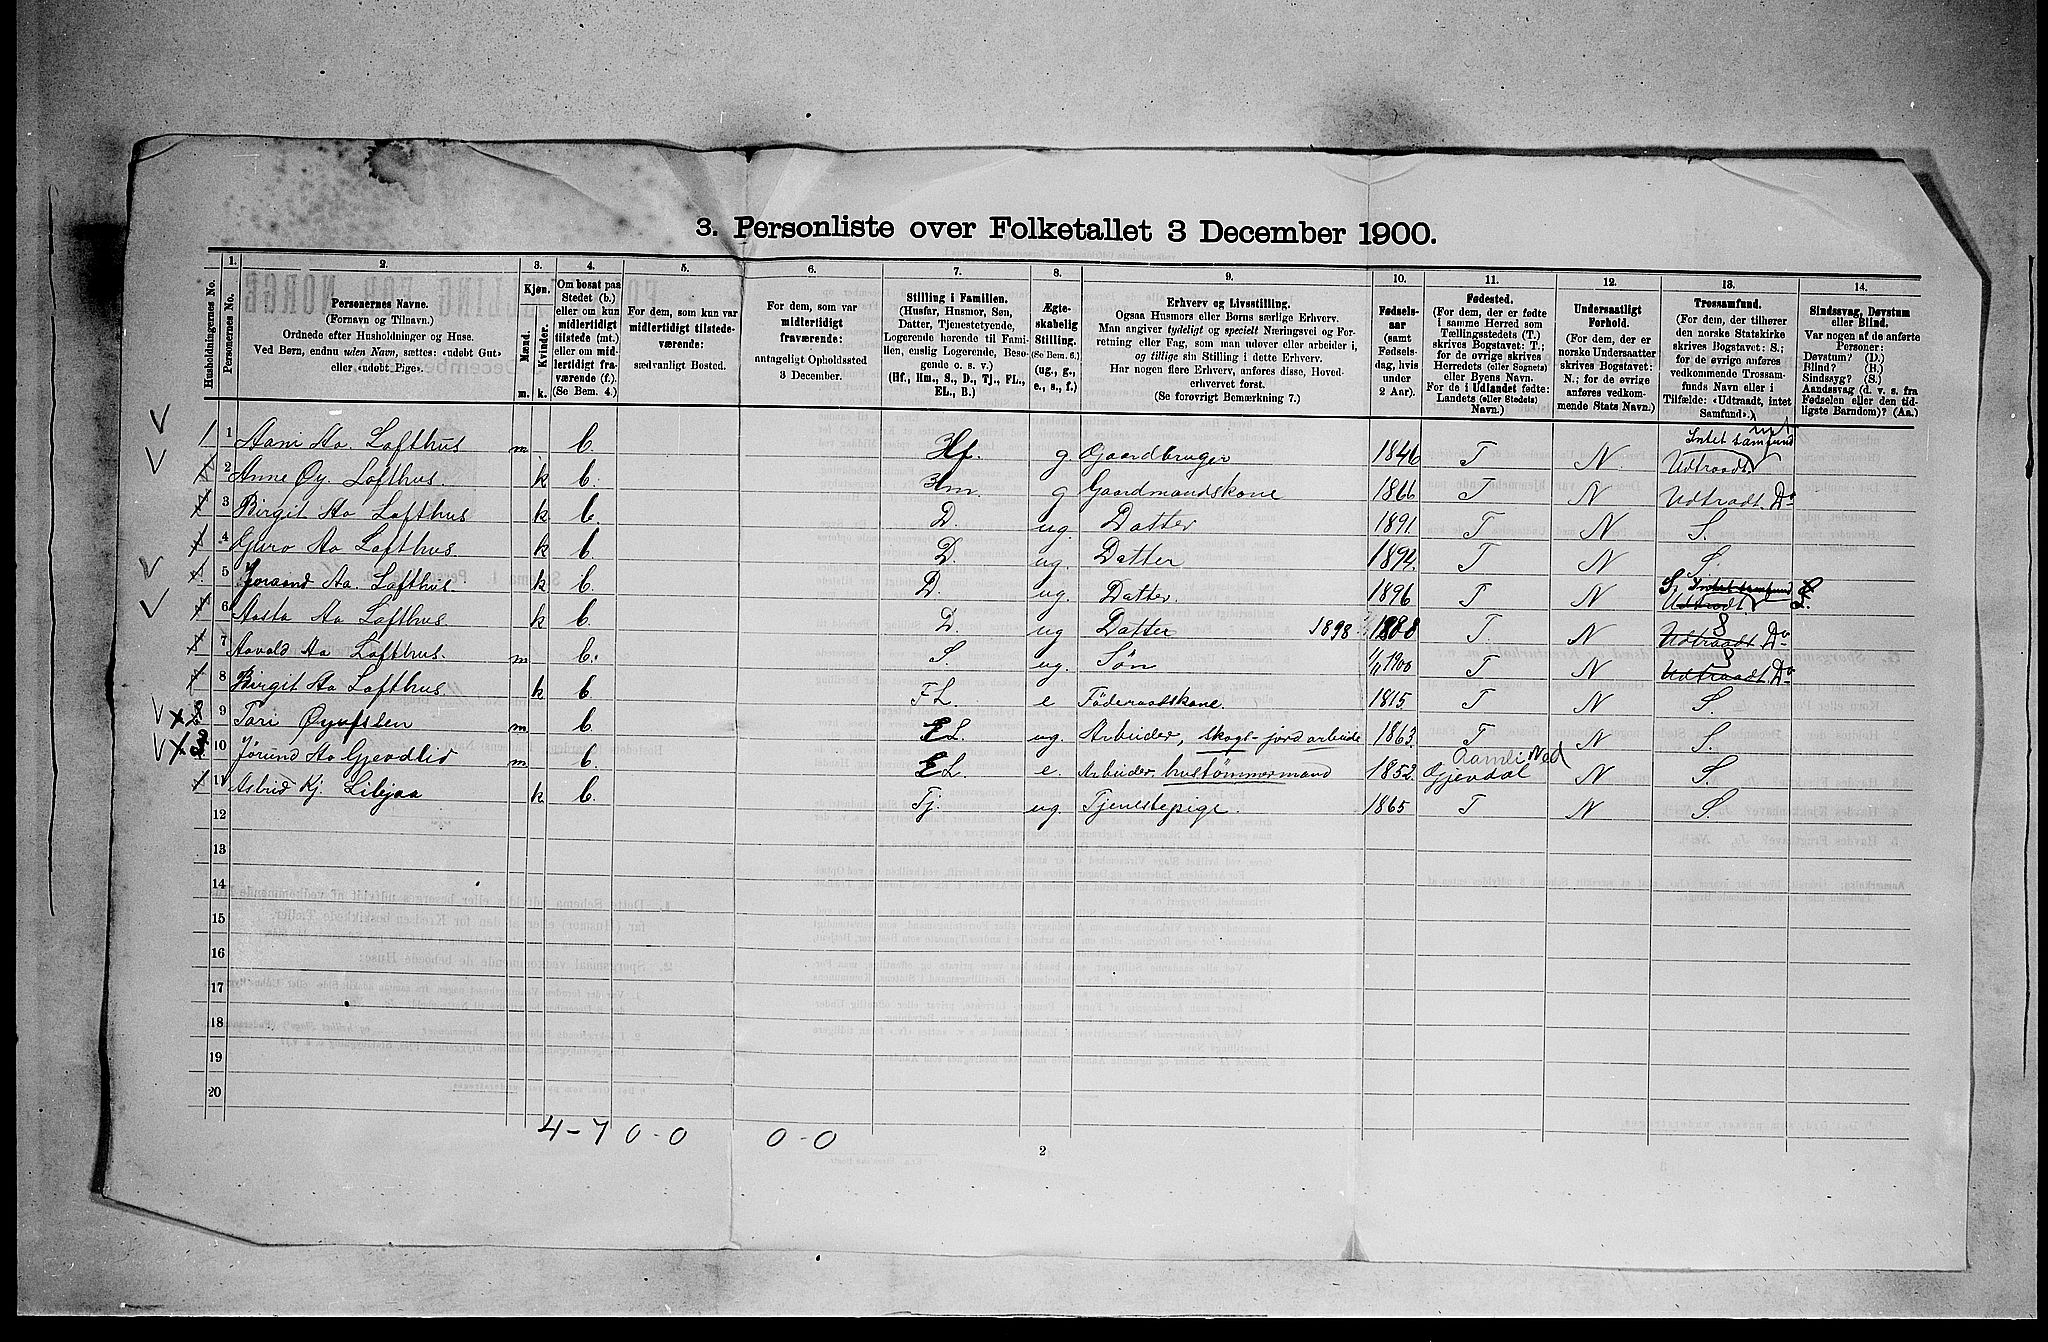 3. Personliste over Folketallet 3 December 1900.
Husholdningernes No.
1. Personernes No.
2. Personernes Navne. (Fornavn og Tilnavn.) Ordnede efter Husholdninger og Huse. Ved Børn, endnu uden Navn, sættes: «udøbt Gut» eller «udøbt Pige».
3. Kjøn. Mænd. m. Kvinder. k.
4. Om bosat paa Stedet (b.) eller om kun midlertidigt tilstede (mt.) eller om midlertidigt fraværende (f.). (Se Bem. 4.)
5. For dem, som kun var midlertidigt tilstedeværende: sædvanligt Bosted.
6. For dem, som var midlertidigt fraværende: antageligt Opholdssted 3 December.
7. Stilling i Familien. (Husfar, Husmor, Søn, Datter, Tjenestetyende, Logerende hørende til Familien, enslig Logerende, Besøgende o. s. v.) (Hf., Hm., S., D., Tj., FL., EL., B.)
8. Ægteskabelig Stilling. (Se Bem. 6.) (ug., g., e., s., f.)
9. Erhverv og Livsstilling. Ogsaa Husmors eller Børns særlige Erhverv. Man angiver tydeligt og specielt Næringsvei og Forretning eller Fag, som man udøver eller arbeider i, og tillige sin Stilling i dette Erhverv. Har nogen flere Erhverv, anføres disse, Hovederhvervet først. (Se forøvrigt Bemærkning 7.)
10. Fødselsaar (samt Fødselsdag, hvis under 2 Aar).
11. Fødested. (For dem, der er fødte i samme Herred som Tællingsstedets (T.) skrives Bogstavet: T.; for de øvrige skrives Herredets (eller Sognets) eller Byens Navn. For de i Udlandet fødte: Landets (eller Stedets) Navn.)
12. Undersaatligt Forhold. (For dem, der er norske Undersaatter skrives Bogstavet: N.; for de øvrige anføres vedkommende Stats Navn.)
13. Trossamfund. (For dem, der tilhører den norske Statskirke skrives Bogstavet: S.; for de øvrige anføres vedkommende Trossamfunds Navn eller i Tilfælde: «Udtraadt, intet Samfund».)
14. Sindssvag, Døvstum eller Blind. Var nogen af de anførte Personer: Døvstum? (D.) Blind? (B.) Sindssyg? (S.) Aandssvag (d. v. s. fra Fødselen eller den tidligste Barndom)? (Aa.)
Intet samfund
1 1 Aani Aa. Lofthus m b. Hf. g. Gaardbruger 1846 T N. Udtraadt.
2 Anne Øy. Lofthus. k b. Hm. g Gaardmandskone 1866 T N Udtradt Do
3 Birgit Aa Lofthus k. b. D. ug. Datter 1891. T N S.
4 Guro Aa Lofthus. k b. D. ug. Datter 1894. T N S.
S. Intet samfund
5 Joraand Aa. Lofthus. k b. D. ug. Datter. 1896 T N Udtradt S.
6 Aasta Aa Lofthus. k b. D. ug Datter 1898 1888 T. N S Udtraadt Do
7 Aavold Aa Lofthus. m b. S. ug. Søn 1/11 1900 T N S Udtraadt. Do
8 Birgit Aa Lofthus k b. FL. e Föderaadskone. 1815 T N S.
9 Tori Øyufsten m b. EL. ug. Arbeider, skogs-jord arbeide 1863. T N S.
Aamli Ned
10 Jörund Aa Gjevdlid m b. EL. e. Arbeider. hustömmermand 1852. Gjevdal N S.
11 Astrid Kj. Lilejaa k b. Tj. ug. Tjenestepige. 1865 T N S.
12
13
14
15
16
17
18
19
20
4-7 0-0 0-0
2